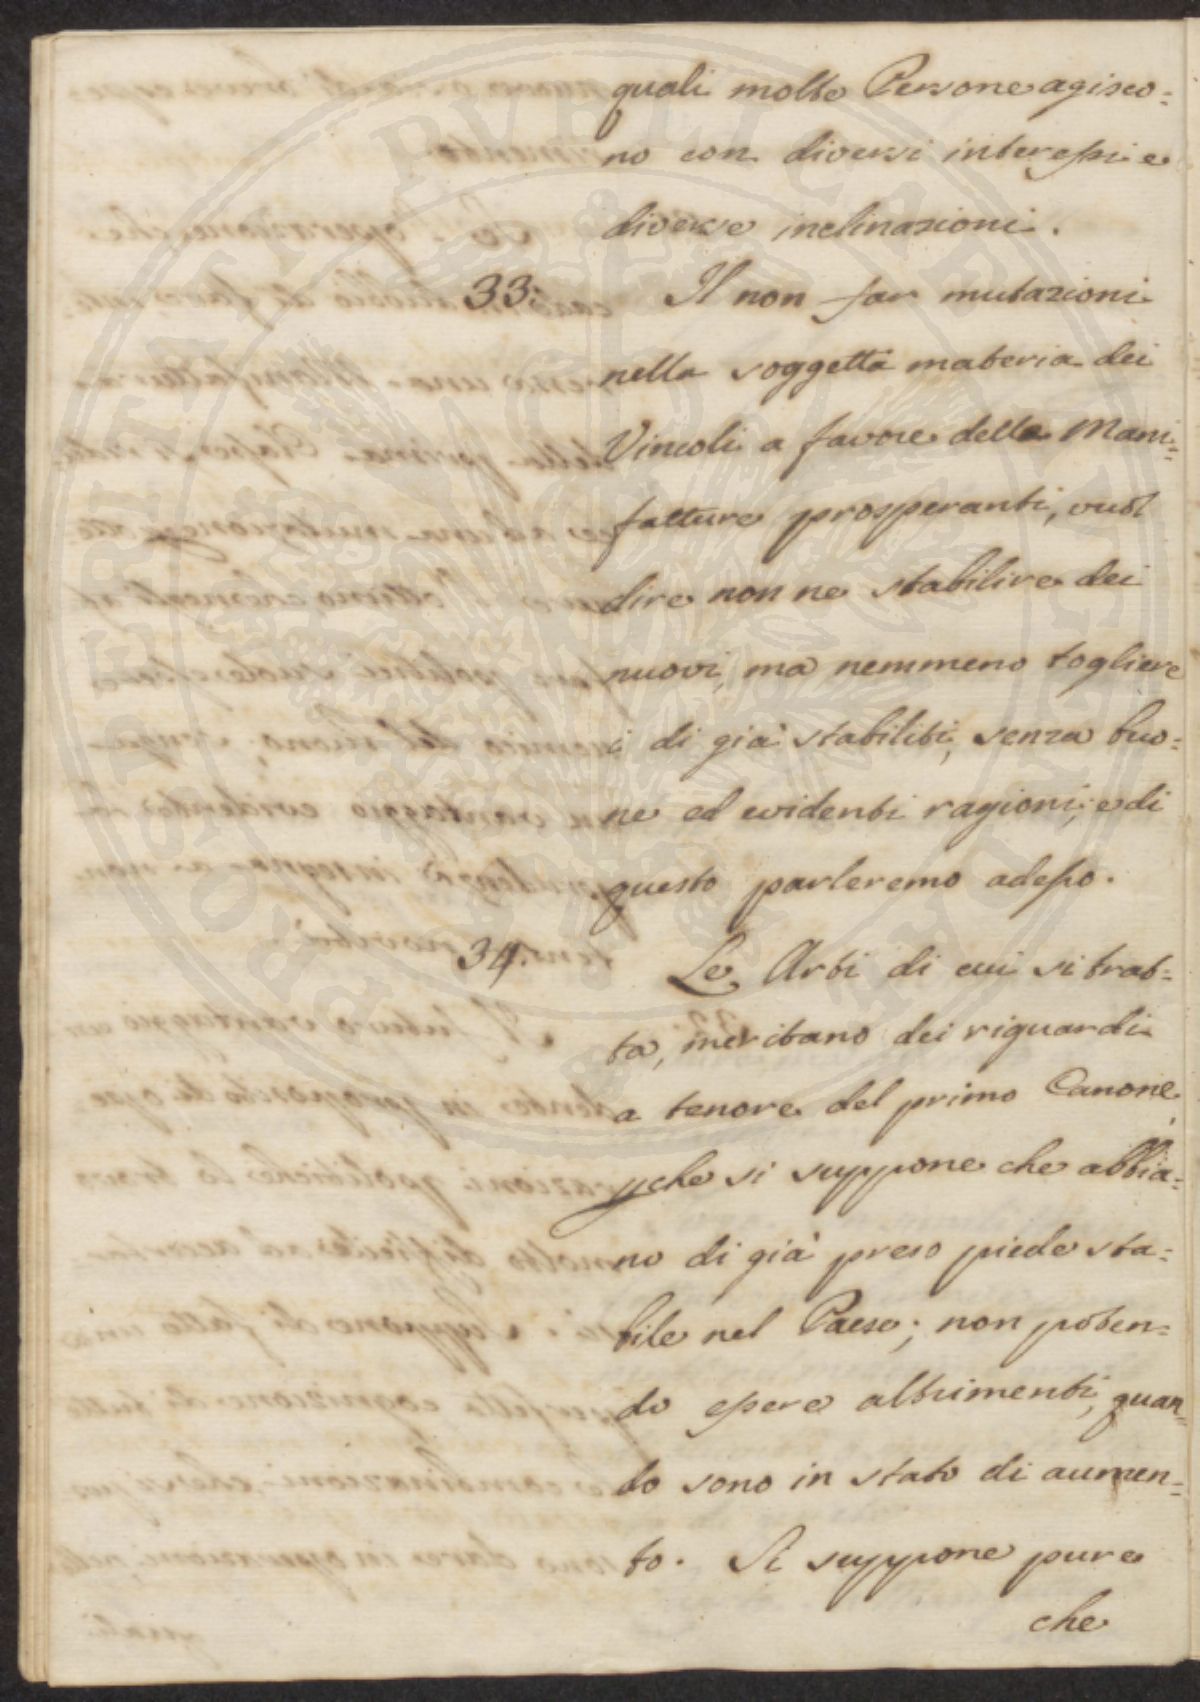 quali molte Persone agisco=
no con diversi interessi e
diverse inclinazioni.
33. Il non far mutazioni
nella soggetta materia dei
Vincoli a favore delle Mani=
fatture prosperanti, vuol
dire non ne stabilire dei
nuovi, ma nemmeno togliere
i di già stabiliti, senza buo=
ne ed evidenti ragioni; e di
questo parleremo adesso.
34. Le Arti di cui si trat=
ta, meritano dei riguardi
a tenore del primo Canone,
che si suppone che abbia=
no di già preso piede sta=
bile nel Paese; non poten=
do essere altrimenti, quan=
do sono in stato di aumen=
to. Si suppone pure
che